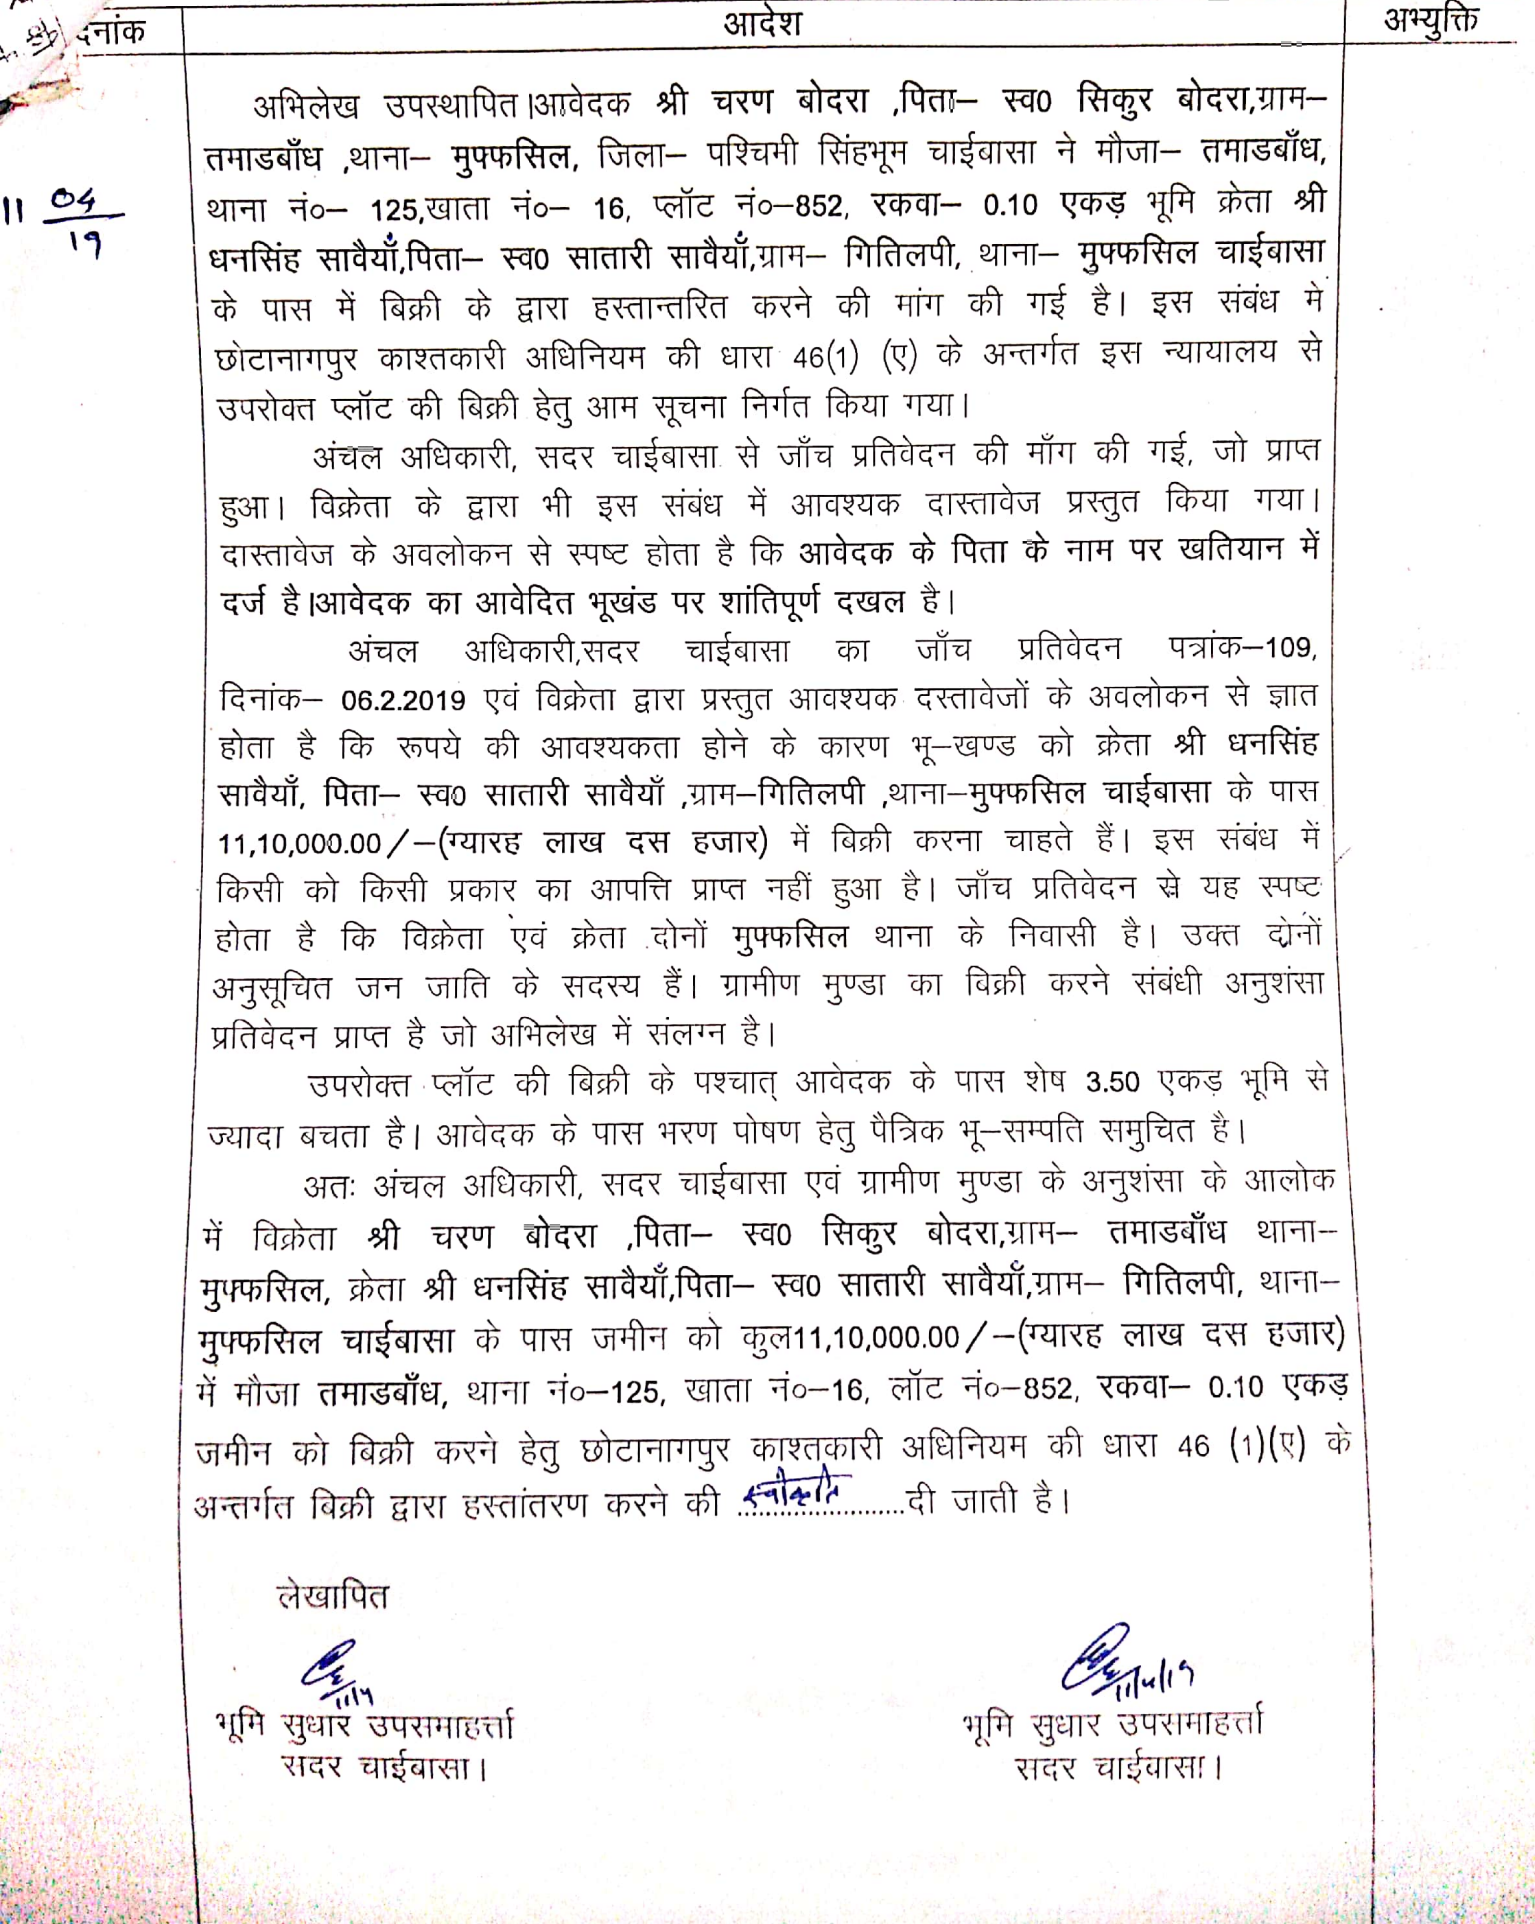 दिनांक आदेश अभ्युक्ति
अभिलेख उपस्थापित।आवेदक श्री चरण बोदरा ,पिता– स्व0 सिकुर बोदरा,ग्राम–
तमाडबाँध ,थाना– मुफ्फसिल, जिला– पश्चिमी सिंहभूम चाईबासा ने मौजा– तमाडबाँध,
11 04/19
थाना नं०– 125,खाता नं०– 16, प्लॉट नं०–852, रकवा– 0.10 एकड़ भूमि क्रेता श्री
धनसिंह सावैयाँ,पिता– स्व0 सातारी सावैयाँ,ग्राम– गितिलपी, थाना– मुफ्फसिल चाईबासा
के पास में बिक्री के द्वारा हस्तान्तरित करने की मांग की गई है। इस संबंध मे
छोटानागपुर काश्तकारी अधिनियम की धारा 46(1) (ए) के अन्तर्गत इस न्यायालय से
उपरोक्त प्लॉट की बिक्री हेतु आम सूचना निर्गत किया गया।
अंचल अधिकारी, सदर चाईबासा से जाँच प्रतिवेदन की माँग की गई, जो प्राप्त
हुआ। विक्रेता के द्वारा भी इस संबंध में आवश्यक दास्तावेज प्रस्तुत किया गया।
दास्तावेज के अवलोकन से स्पष्ट होता है कि आवेदक के पिता के नाम पर खतियान में
दर्ज है।आवेदक का आवेदित भूखंड पर शांतिपूर्ण दखल है।
अंचल अधिकारी,सदर चाईबासा का जाँच प्रतिवेदन पत्रांक–109,
दिनांक– 06.2.2019 एवं विक्रेता द्वारा प्रस्तुत आवश्यक दस्तावेजों के अवलोकन से ज्ञात
होता है कि रूपये की आवश्यकता होने के कारण भू–खण्ड को क्रेता श्री धनसिंह
सावैयाँ, पिता– स्व0 सातारी सावैयाँ ,ग्राम–गितिलपी ,थाना–मुफ्फसिल चाईबासा के पास
11,10,000.00/–(ग्यारह लाख दस हजार) में बिक्री करना चाहते हैं। इस संबंध में
किसी को किसी प्रकार का आपत्ति प्राप्त नहीं हुआ है। जाँच प्रतिवेदन से यह स्पष्ट
होता है कि विक्रेता एवं क्रेता दोनों मुफ्फसिल थाना के निवासी है। उक्त दोनों
अनुसूचित जन जाति के सदस्य हैं। ग्रामीण मुण्डा का बिक्री करने संबंधी अनुशंसा
प्रतिवेदन प्राप्त है जो अभिलेख में संलग्न है।
उपरोक्त प्लॉट की बिक्री के पश्चात् आवेदक के पास शेष 3.50 एकड़ भूमि से
ज्यादा बचता है। आवेदक के पास भरण पोषण हेतु पैत्रिक भू–सम्पति समुचित है।
अतः अंचल अधिकारी, सदर चाईबासा एवं ग्रामीण मुण्डा के अनुशंसा के आलोक
में विक्रेता श्री चरण बोदरा ,पिता– स्व0 सिकुर बोदरा,ग्राम– तमाडबाँध थाना–
मुफ्फसिल, क्रेता श्री धनसिंह सावैयाँ,पिता– स्व0 सातारी सावैयाँ,ग्राम– गितिलपी, थाना–
मुफ्फसिल चाईबासा के पास जमीन को कुल11,10,000.00/–(ग्यारह लाख दस हजार)
में मौजा तमाडबाँध, थाना नं०–125, खाता नं०–16, लॉट नं०–852, रकवा– 0.10 एकड़
जमीन को बिक्री करने हेतु छोटानागपुर काश्तकारी अधिनियम की धारा 46 (1)(ए) के
अन्तर्गत बिक्री द्वारा हस्तांतरण करने की स्वीकृति......दी जाती है।
लेखापित
11/4 11/4/19
भूमि सुधार उपसमाहर्त्ता भूमि सुधार उपसमाहर्त्ता
सदर चाईबासा। सदर चाईबासा।